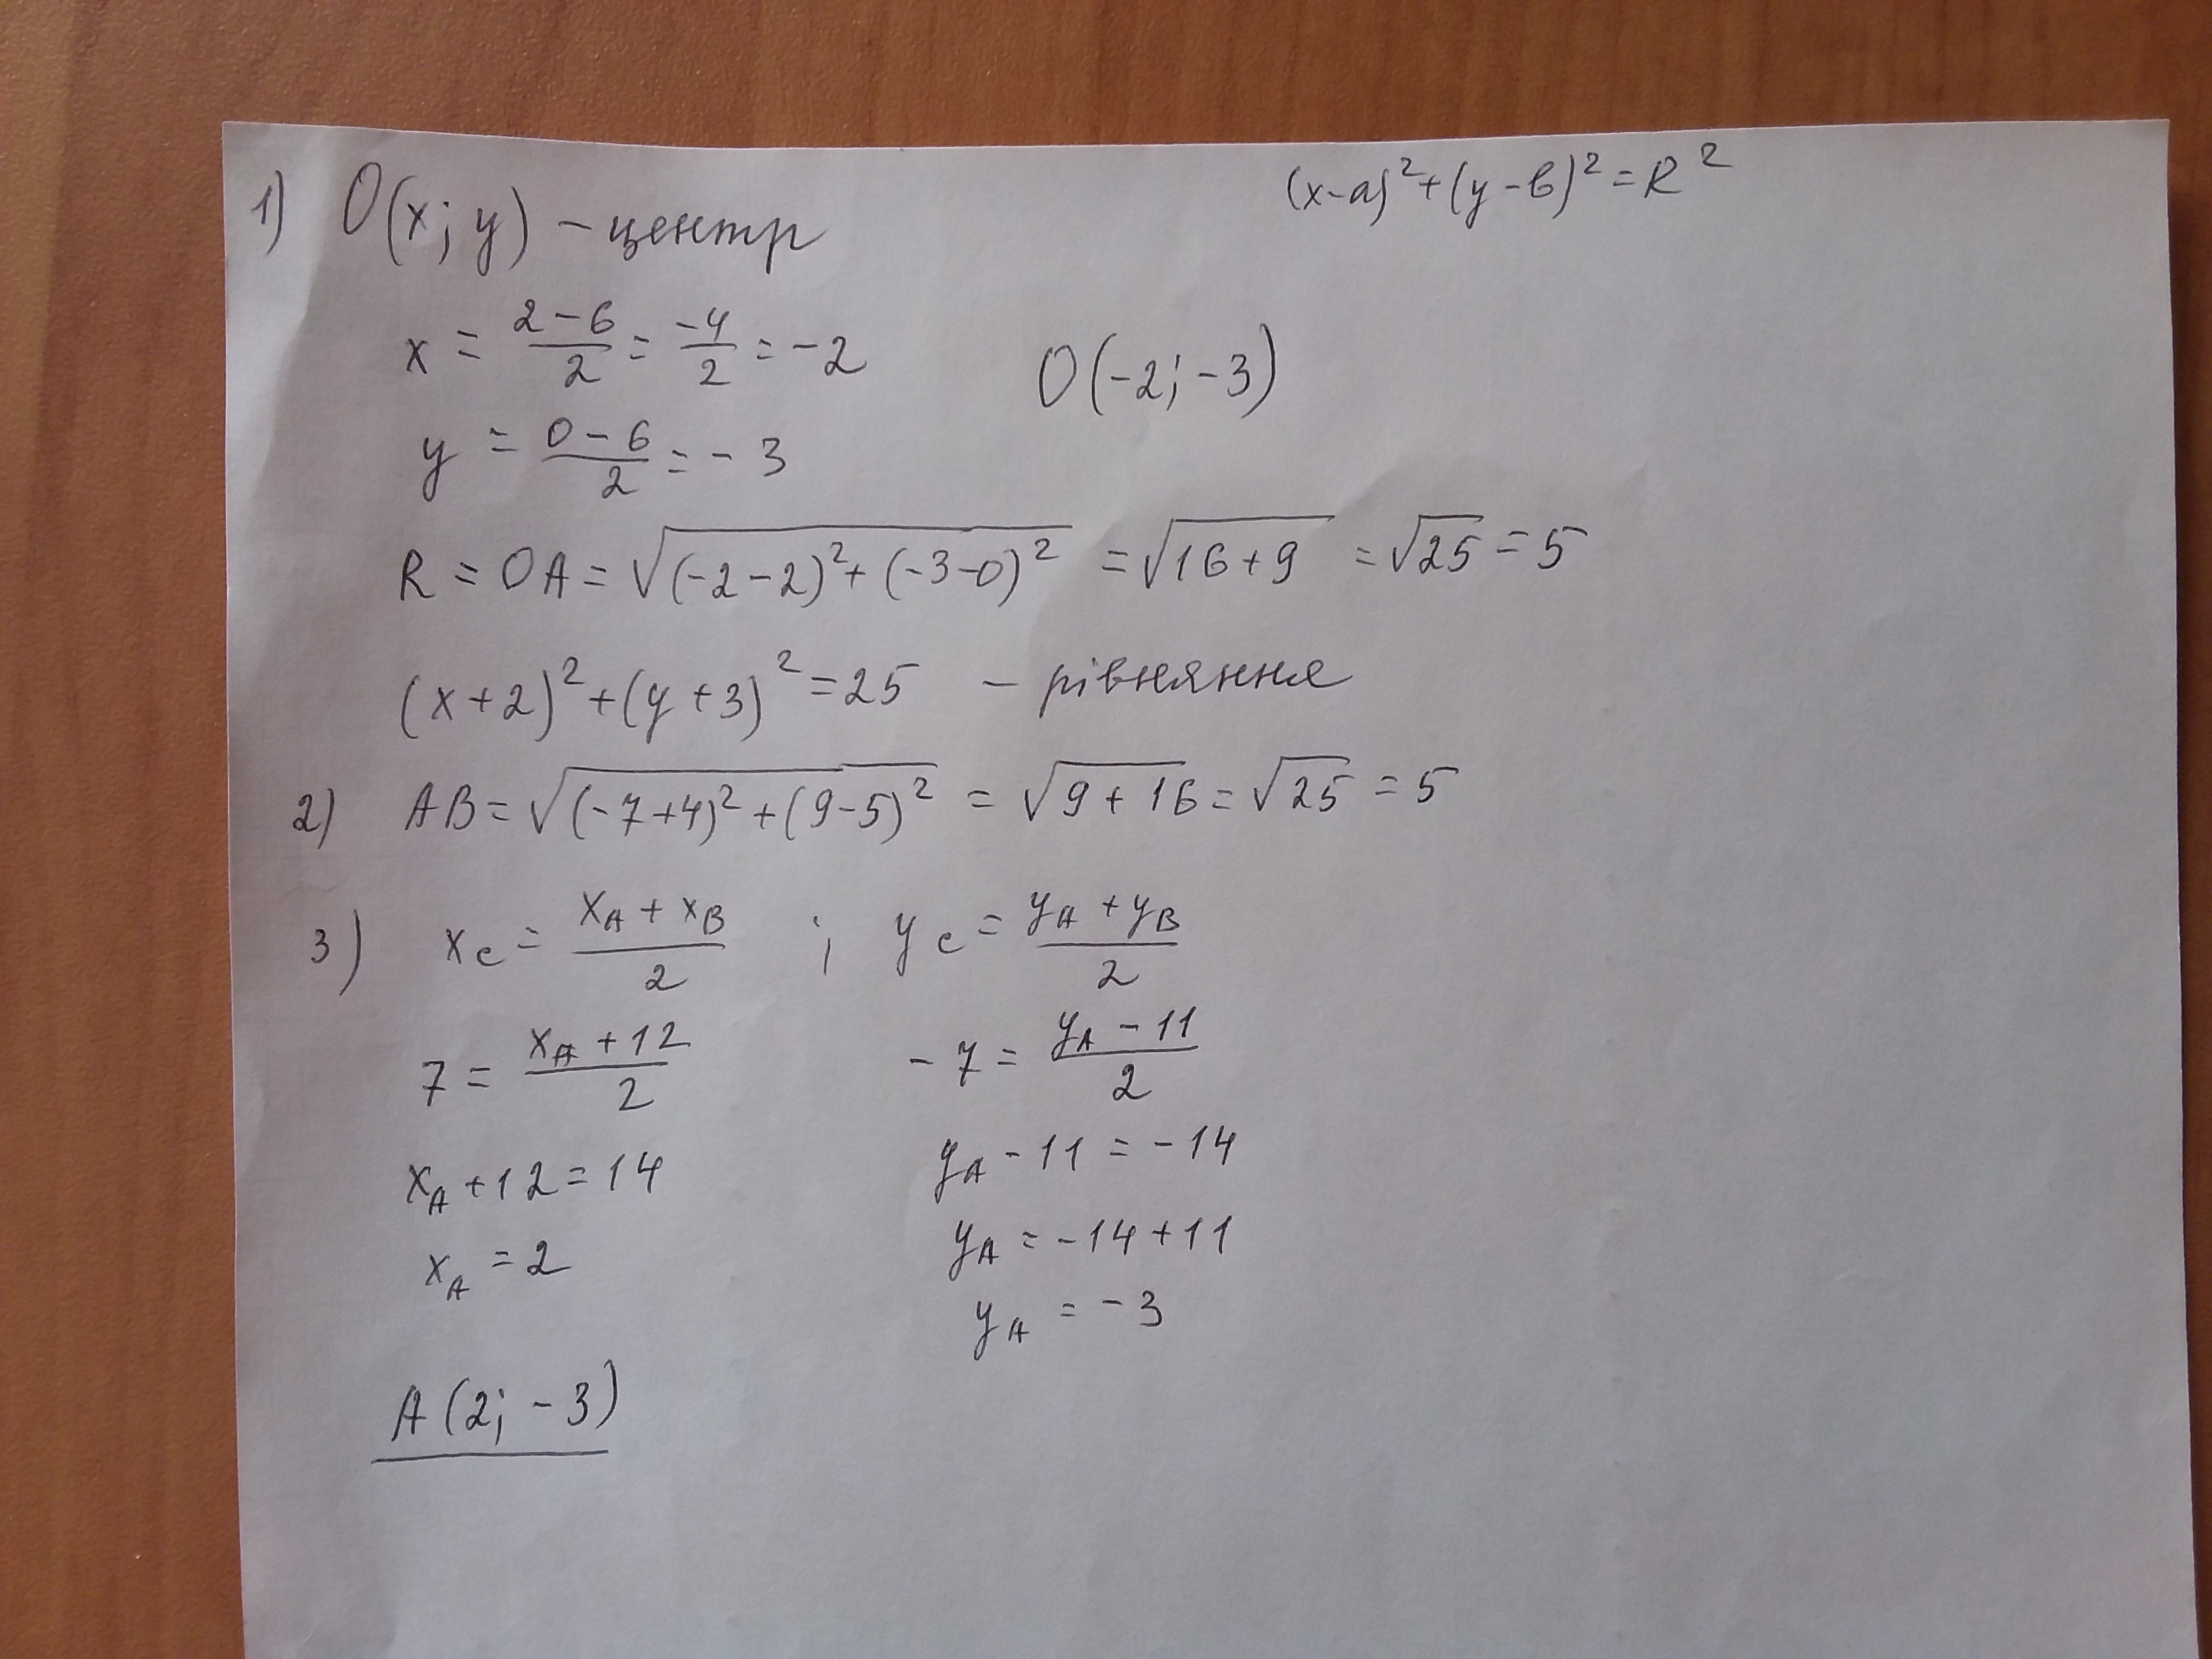 (x-a)²+(y-b)²=R²
1) O(x; y) – центр
x = (2-6)/2 = -4/2 = -2
O(-2; -3)
y = (0-6)/2 = -3
R = OA = √((-2-2)²+(-3-0)²) = √(16+9) = √25 = 5
(x+2)²+(y+3)²=25 – рівняння
2) AB = √((-7+4)²+(9-5)²) = √(9+16) = √25 = 5
3) x_c = (x_A + x_B)/2 ; y_c = (y_A + y_B)/2
7 = (x_A + 12)/2 -7 = (y_A - 11)/2
x_A + 12 = 14 y_A - 11 = -14
x_A = 2 y_A = -14 + 11
y_A = -3
A(2; -3)